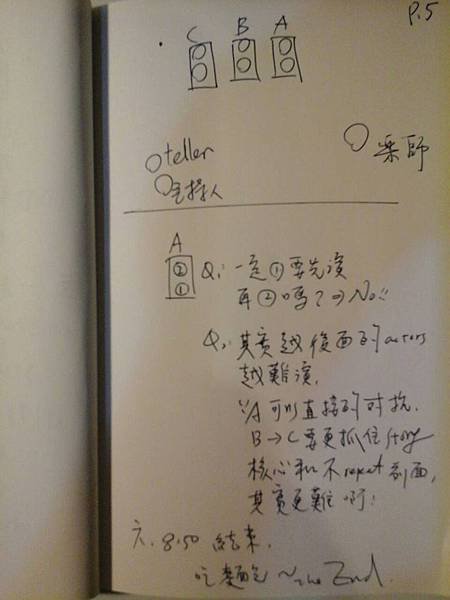 P.5
C B A
teller
主持人
樂師
A
②
①
Q: 一定①要先演
再②嗎?⇒No!!
Q: 其實越後面的actors
越難演,
∵A可以直接的对抗,
B→C要更抓住story
核心和不repeat到面,
其實更難啊!
六、8:50 結束,
吃麵包~the End.